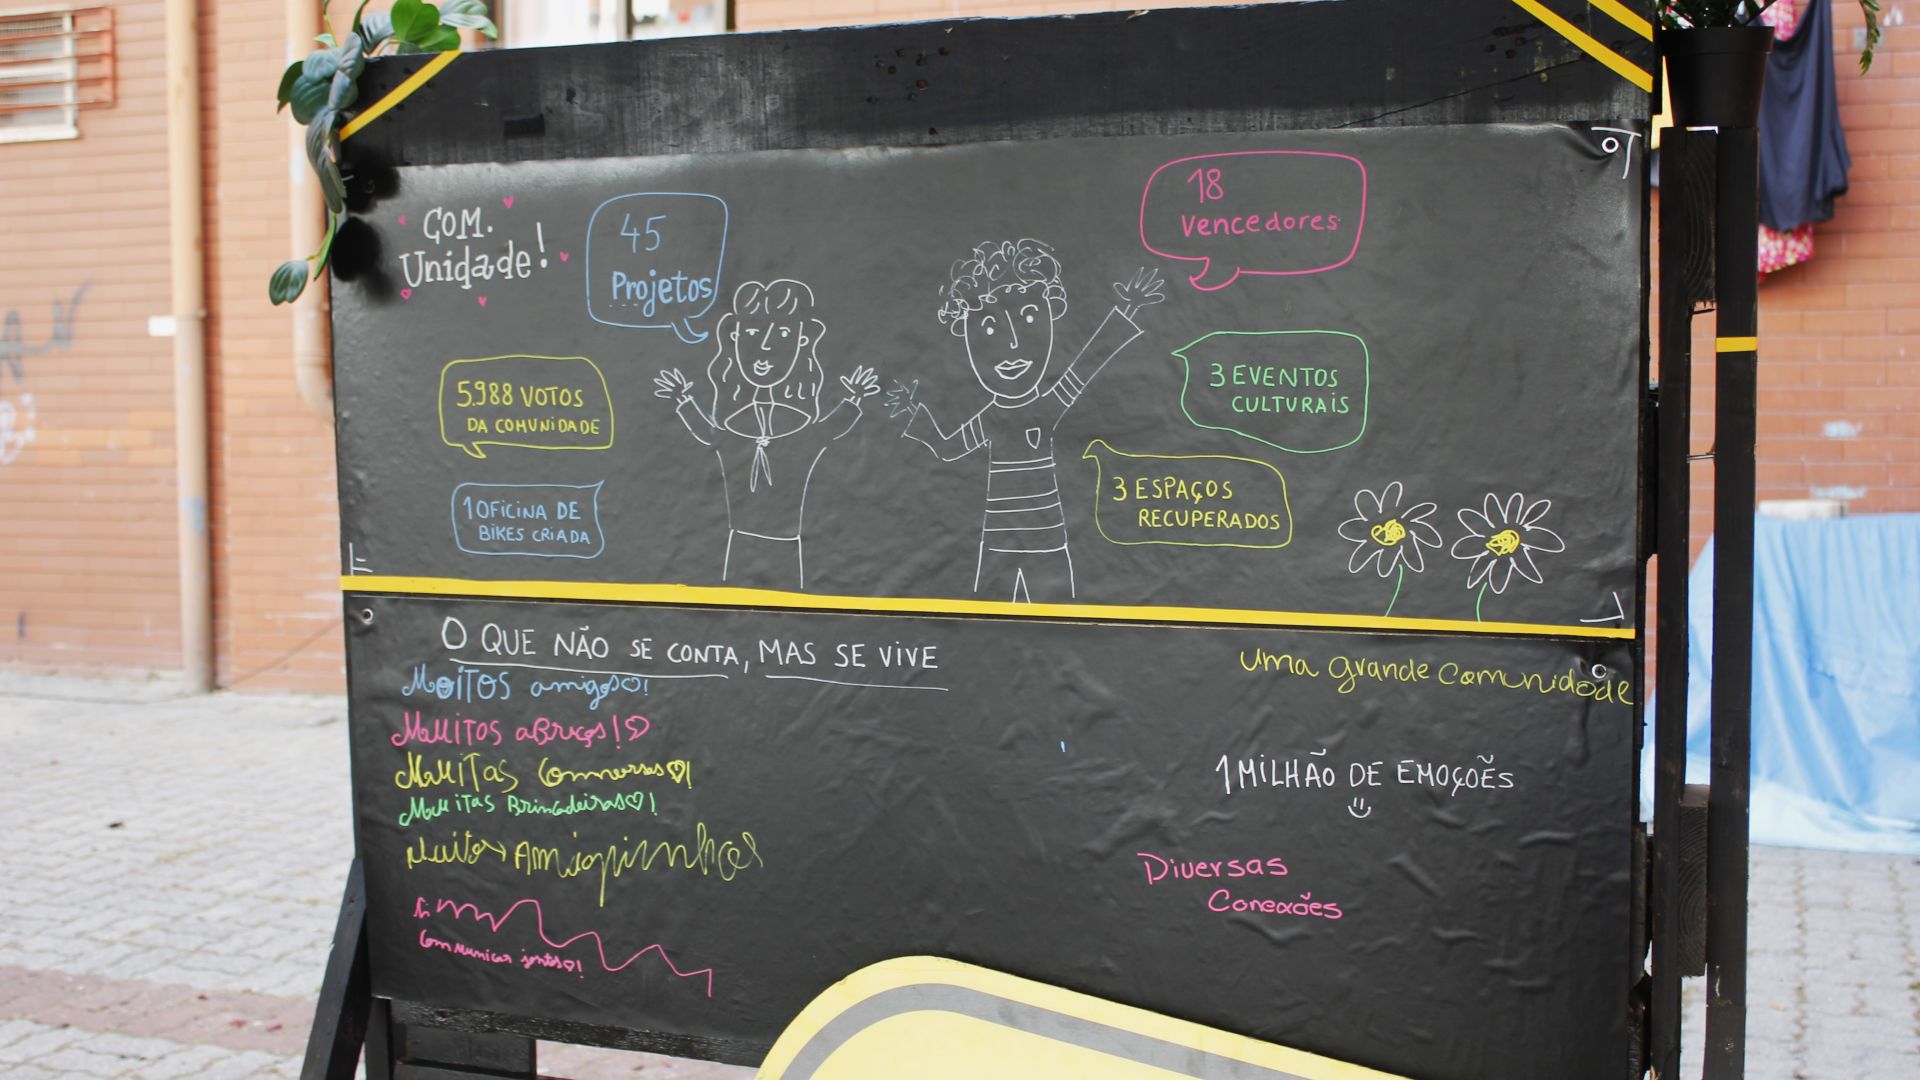 COM.
Unidade!
45
Projetos
18
Vencedores
5.988 VOTOS
DA COMUNIDADE
3 EVENTOS
CULTURAIS
1 OFICINA DE
BIKES CRIADA
3 ESPAÇOS
RECUPERADOS
O QUE NÃO SE CONTA, MAS SE VIVE
MUITOS amigos!
MUITOS aBraços!
MUITAS Conversas!
MUITAS Brincadeiras!
Muitos Amiguinhos
Comunicar juntos!
uma grande Comunidade
1 MILHÃO DE EMOÇÕES
Diversas
Conexões